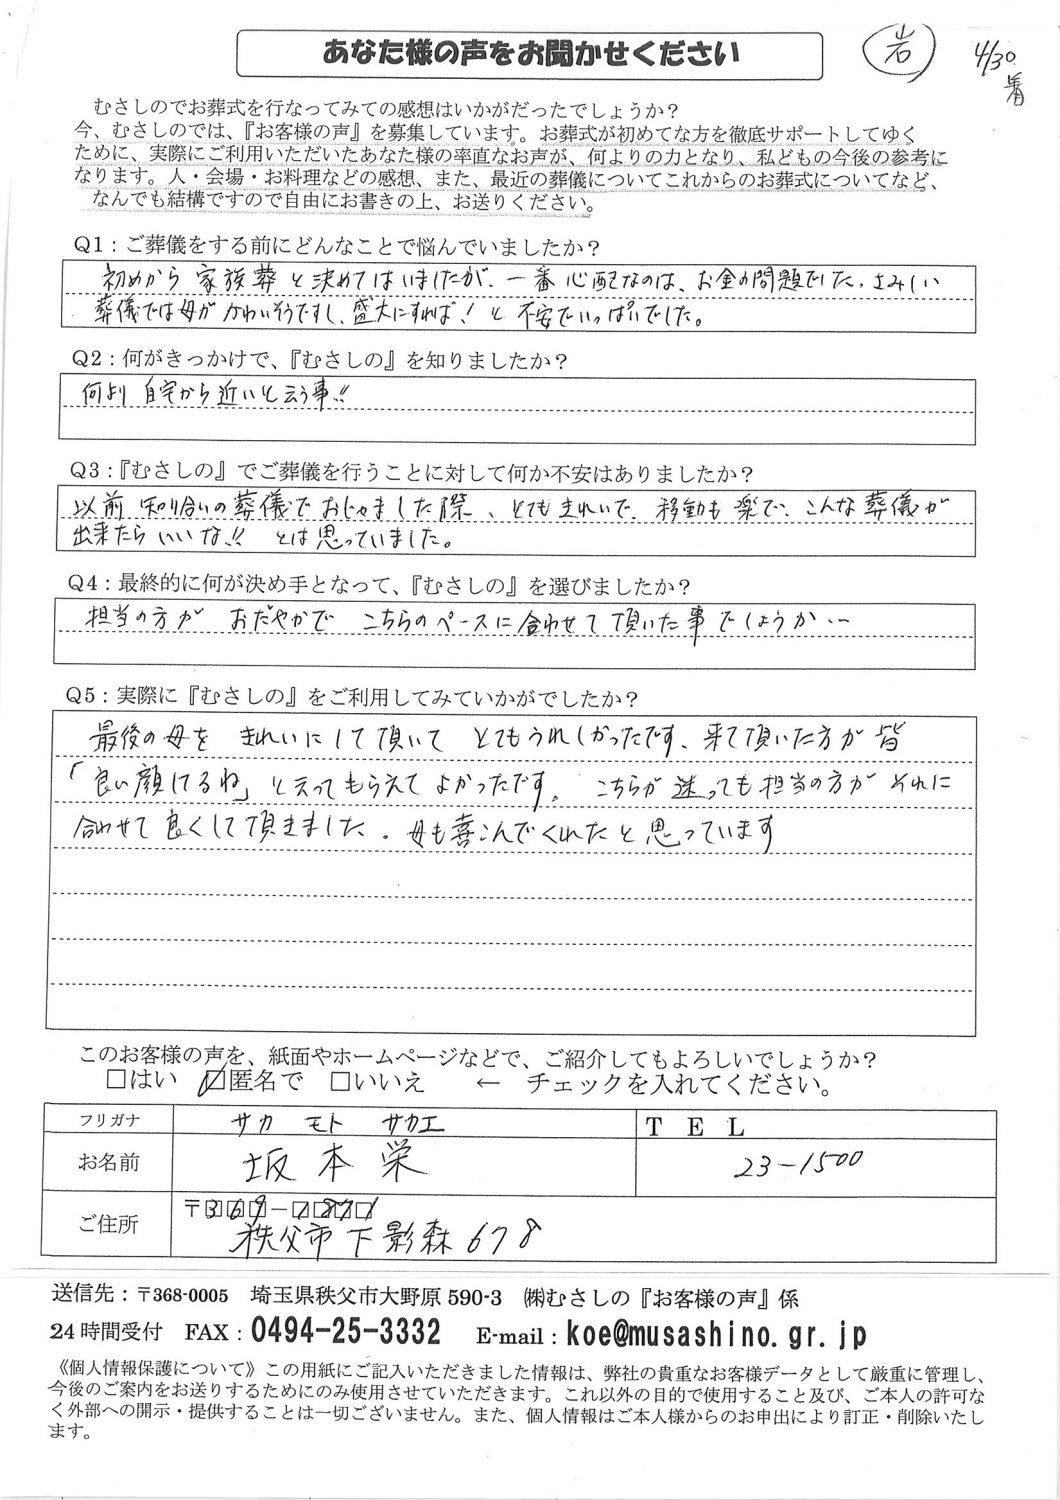 あなた様の声をお聞かせください
岩
4/30
着
むさしのでお葬式を行なってみての感想はいかがだったでしょうか?
今、むさしのでは、『お客様の声』を募集しています。お葬式が初めてな方を徹底サポートしてゆく
ために、実際にご利用いただいたあなた様の率直なお声が、何よりの力となり、私どもの今後の参考に
なります。人・会場・お料理などの感想、また、最近の葬儀についてこれからのお葬式についてなど、
なんでも結構ですので自由にお書きの上、お送りください。
Q1:ご葬儀をする前にどんなことで悩んでいましたか?
初めから家族葬と決めてはいましたが、一番心配なのは、お金の問題でした。さみしい
葬儀では母がかわいそうですし、盛大にすれば!と不安でいっぱいでした。
Q2:何がきっかけで、『むさしの』を知りましたか?
何より自宅から近いと云う事!!
Q3:『むさしの』でご葬儀を行うことに対して何か不安はありましたか?
以前知り合いの葬儀でおじゃましました際、とてもきれいで、移動も楽で、こんな葬儀が
出来たらいいな!!とは思っていました。
Q4:最終的に何が決め手となって、『むさしの』を選びましたか?
担当の方が おだやかで こちらのペースに合わせて頂いた事でしょうか…
Q5:実際に『むさしの』をご利用してみていかがでしたか?
最後の母を きれいにして頂いて とてもうれしかったです、来て頂いた方が皆
「良い顔してるね」と云ってもらえてよかったです。こちらが迷っても担当の方がそれに
合わせて良くして頂きました。母も喜こんでくれたと思っています
このお客様の声を、紙面やホームページなどで、ご紹介してもよろしいでしょうか?
□はい ☑匿名で □いいえ ← チェックを入れてください。
フリガナ サカ モト サカエ TEL
お名前 坂本栄 23-1500
ご住所 〒369-1871
秩父市下影森678
送信先:〒368-0005 埼玉県秩父市大野原590-3 ㈱むさしの『お客様の声』係
24時間受付 FAX:0494-25-3332 E-mail:koe@musashino.gr.jp
《個人情報保護について》この用紙にご記入いただきました情報は、弊社の貴重なお客様データとして厳重に管理し、
今後のご案内をお送りするためにのみ使用させていただきます。これ以外の目的で使用すること及び、ご本人の許可な
く外部への開示・提供することは一切ございません。また、個人情報はご本人様からのお申出により訂正・削除いたし
ます。